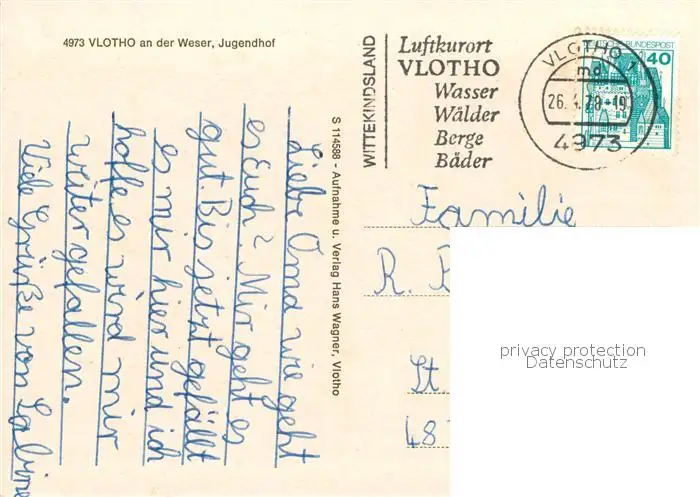 4973 VLOTHO an der Weser, Jugendhof
Liebe Oma wie geht
es Euch? Mir geht es
gut. Bis jetzt gefällt
es mir hier und ich
hoffe es wird mir
weiter gefallen.
Viele Grüße von Sabine
S 114588 - Aufnahme u. Verlag Hans Wagner, Vlotho
WITTEKINDSLAND
Luftkurort
VLOTHO
Wasser
Wälder
Berge
Bäder
VLOTHO 1
md
26.4.78-19
4973
DEUTSCHE BUNDESPOST
40
Familie
R.
St
48
privacy protection
Datenschutz